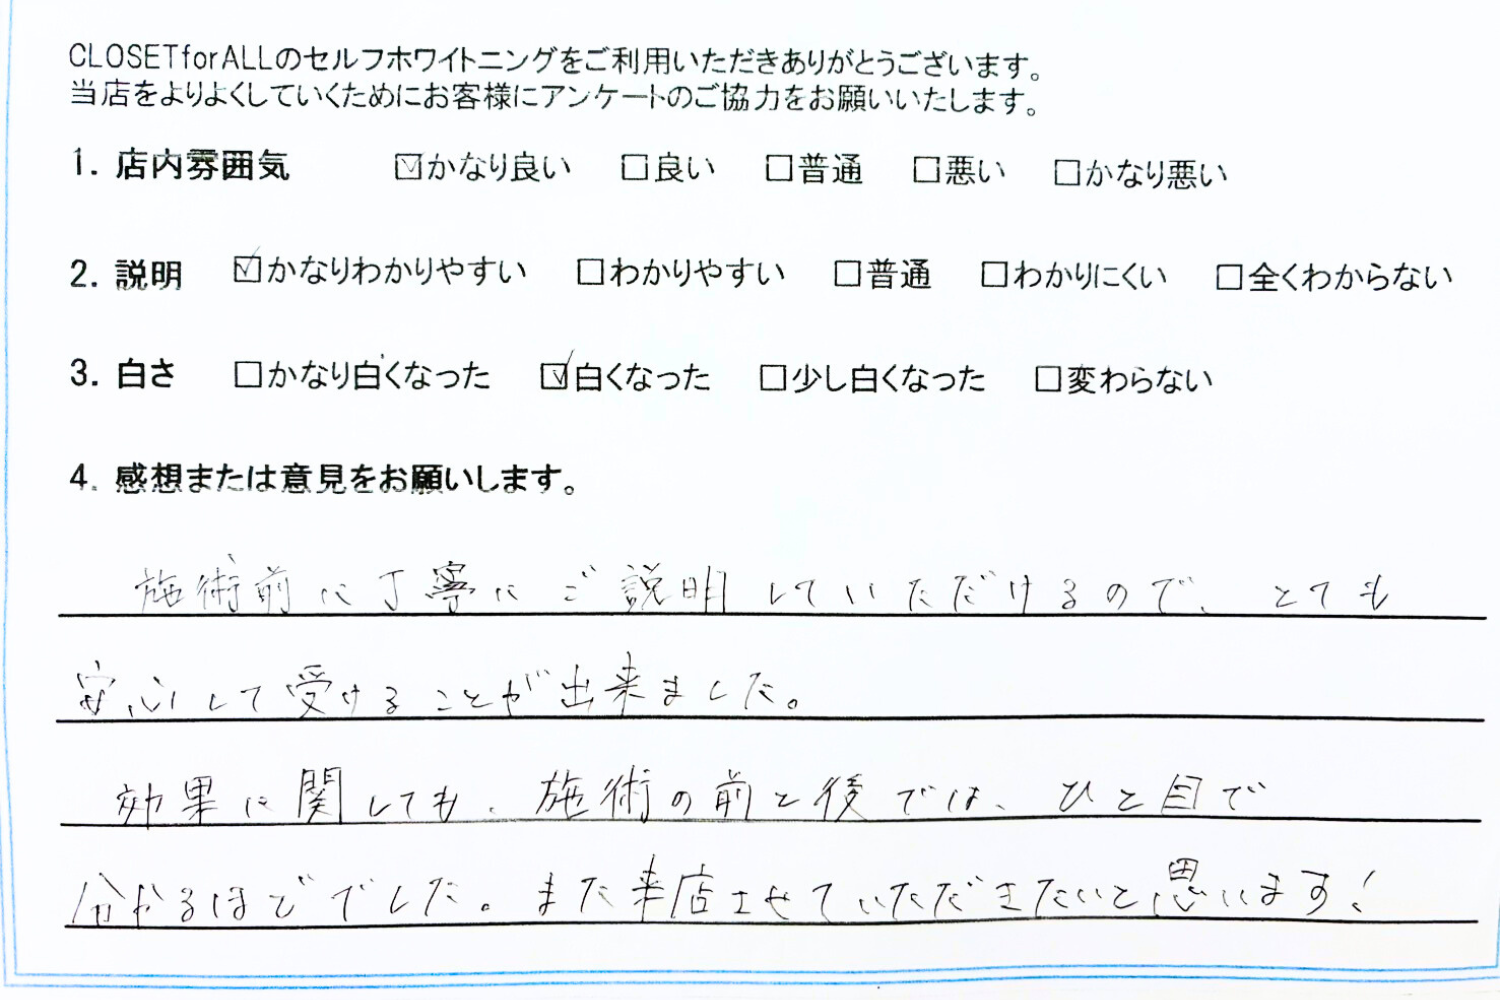 CLOSETforALLのセルフホワイトニングをご利用いただきありがとうございます。
当店をよりよくしていくためにお客様にアンケートのご協力をお願いいたします。
1. 店内雰囲気 ☑かなり良い □良い □普通 □悪い □かなり悪い
2. 説明 ☑かなりわかりやすい □わかりやすい □普通 □わかりにくい □全くわからない
3. 白さ □かなり白くなった ☑白くなった □少し白くなった □変わらない
4. 感想または意見をお願いします。
施術前に丁寧にご説明していただけるので、とても
安心して受けることが出来ました。
効果に関しても、施術の前と後では、ひと目で
分かるほどでした。また来店させていただきたいと思います!